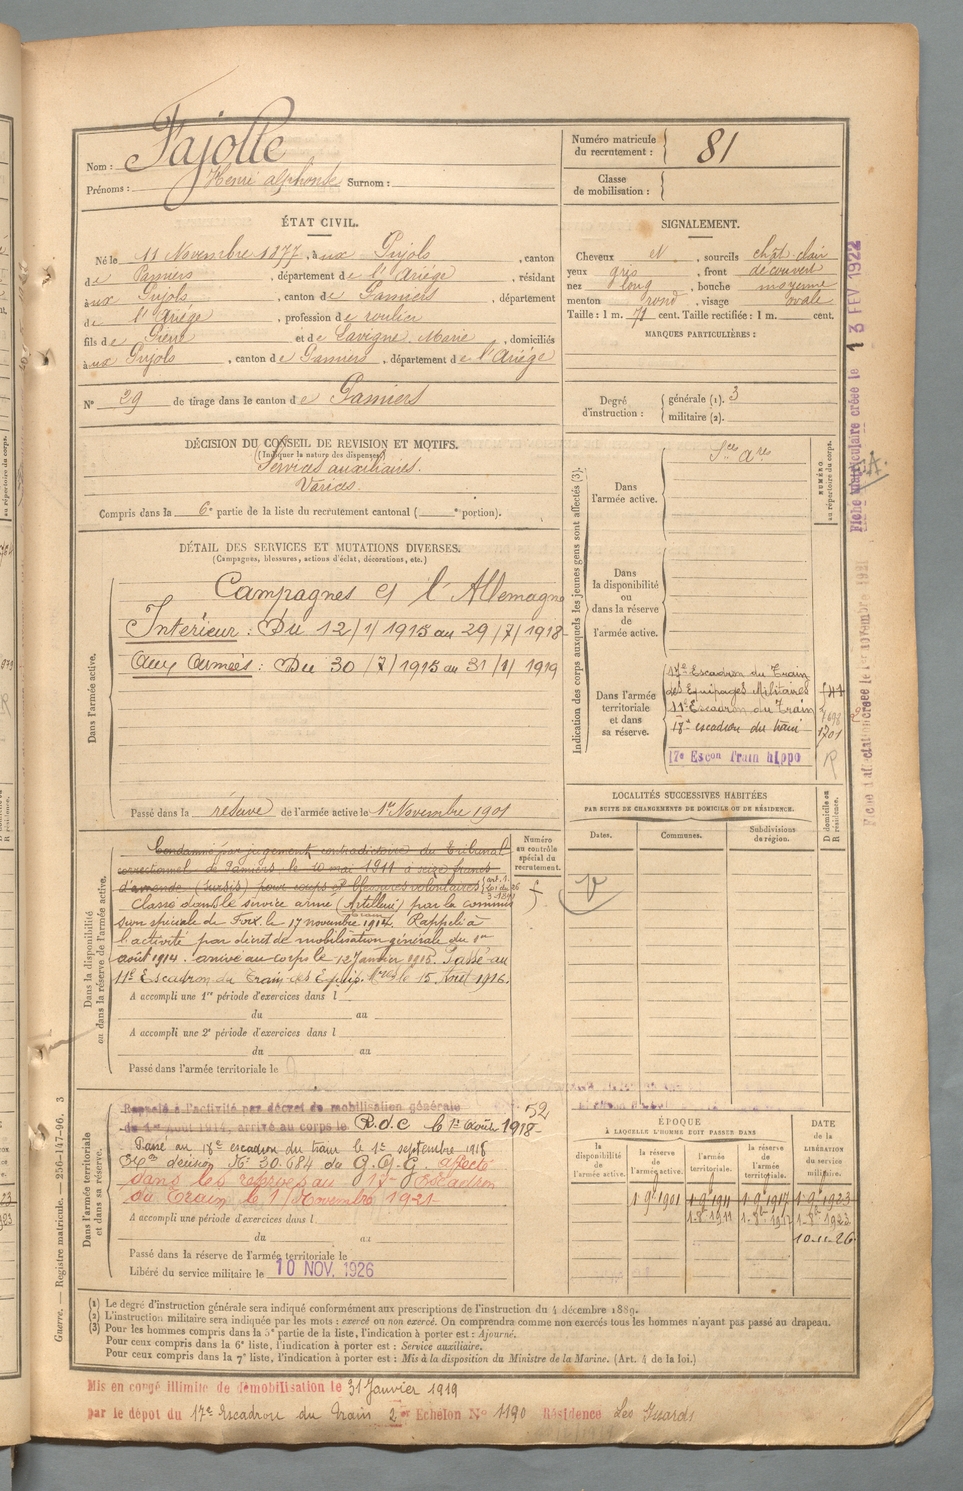 Nom : Fajolle
Prénoms : Henri alphonse Surnom :
Numéro matricule du recrutement : 81
Classe de mobilisation :
ÉTAT CIVIL.
Né le 11 Novembre 1877, à ux Pujols, canton
de Pamiers, département de l'Ariège, résidant
à ux Pujols, canton de Pamiers, département
de l'Ariège, profession de roulier
fils de Pierre et de Lavigne Marie, domiciliés
à ux Pujols, canton de Pamiers, département de l'Ariège
N° 29 de tirage dans le canton de Pamiers
SIGNALEMENT.
Cheveux et, sourcils chât. clair
yeux gris, front découvert
nez long, bouche moyenne
menton rond, visage ovale
Taille : 1 m. 71 cent. Taille rectifiée : 1 m. cent.
MARQUES PARTICULIÈRES :
Degré d'instruction : générale (1). 3
militaire (2).
DÉCISION DU CONSEIL DE REVISION ET MOTIFS.
(Indiquer la nature des dispenses)
Services auxiliaires.
Varices.
Compris dans la 6e partie de la liste du recrutement cantonal ( e portion).
DÉTAIL DES SERVICES ET MUTATIONS DIVERSES.
(Campagnes, blessures, actions d'éclat, décorations, etc.)
Dans l'armée active.
Campagnes c/ l'Allemagne
Intérieur : Du 12/1/1915 au 29/7/1918
Aux Armées : Du 30/7/1915 au 31/1/1919
Passé dans la réserve de l'armée active le 1er Novembre 1901
Indication des corps auxquels les jeunes gens sont affectés (3).
NUMÉRO au répertoire du corps.
Dans l'armée active.
Sce Are
Dans la disponibilité ou dans la réserve de l'armée active.
Dans l'armée territoriale et dans sa réserve.
17e Escadron du Train
des Equipages Militaires
11e Escadron du Train
18e escadron du train
17e Escon Train hippo
1201
R
LOCALITÉS SUCCESSIVES HABITÉES
PAR SUITE DE CHANGEMENTS DE DOMICILE OU DE RÉSIDENCE.
Dates.
Communes.
Subdivisions de région.
D domicile ou R résidence.
Dans la disponibilité ou dans la réserve de l'armée active.
Numéro au contrôle spécial du recrutement.
Condamné par jugement contradictoire du Tribunal
correctionnel de Pamiers le 10 mai 1911 à seize francs
d'amende (sursis) pour coups et blessures volontaires
Classé dans le service armé (Artillerie) par la commis
sion spéciale de Foix le 17 novembre 1914. Rappelé à
l'activité par décret de mobilisation générale du 1er
août 1914. arrivé au corps le 12 Janvier 1915. Passé au
11e Escadron du Train des Equip. Mres le 15 Août 1916.
A accompli une 1re période d'exercices dans l
du au
A accompli une 2e période d'exercices dans l
du au
Passé dans l'armée territoriale le
Dans l'armée territoriale et dans sa réserve.
Rappelé à l'activité par décret de mobilisation générale
du 1er Août 1914, arrivé au corps le R.d.C le 1er Août 1918
52
Passé au 18e escadron du train le 1er septembre 1918
N° 30.684 du G.Q.G. affecté
dans les réserves au 17e Escadron
du Train le 1/Novembre 1921
A accompli une période d'exercices dans l
du au
Passé dans la réserve de l'armée territoriale le
Libéré du service militaire le 10 NOV. 1926
ÉPOQUE
À LAQUELLE L'HOMME DOIT PASSER DANS
la disponibilité de l'armée active.
la réserve de l'armée active.
l'armée territoriale.
la réserve de l'armée territoriale.
DATE de la LIBÉRATION du service militaire.
1.9.1901 1.9.1911 1.9.1917 1.9.1923
10-11-26
(1) Le degré d'instruction générale sera indiqué conformément aux prescriptions de l'instruction du 4 décembre 1889.
(2) L'instruction militaire sera indiquée par les mots : exercé ou non exercé. On comprendra comme non exercés tous les hommes n'ayant pas passé au drapeau.
(3) Pour les hommes compris dans la 5e partie de la liste, l'indication à porter est : Ajourné.
Pour ceux compris dans la 6e liste, l'indication à porter est : Service auxiliaire.
Pour ceux compris dans la 7e liste, l'indication à porter est : Mis à la disposition du Ministre de la Marine. (Art. 4 de la loi.)
Mis en congé illimité de démobilisation le 31 Janvier 1919
par le dépôt du 17e Escadron du Train 2er Echelon N° 1190 Résidence Les Issards
Guerre. — Registre matricule. — 256-147-96. 3
Fiche matriculaire créée le 13 FEV 1922